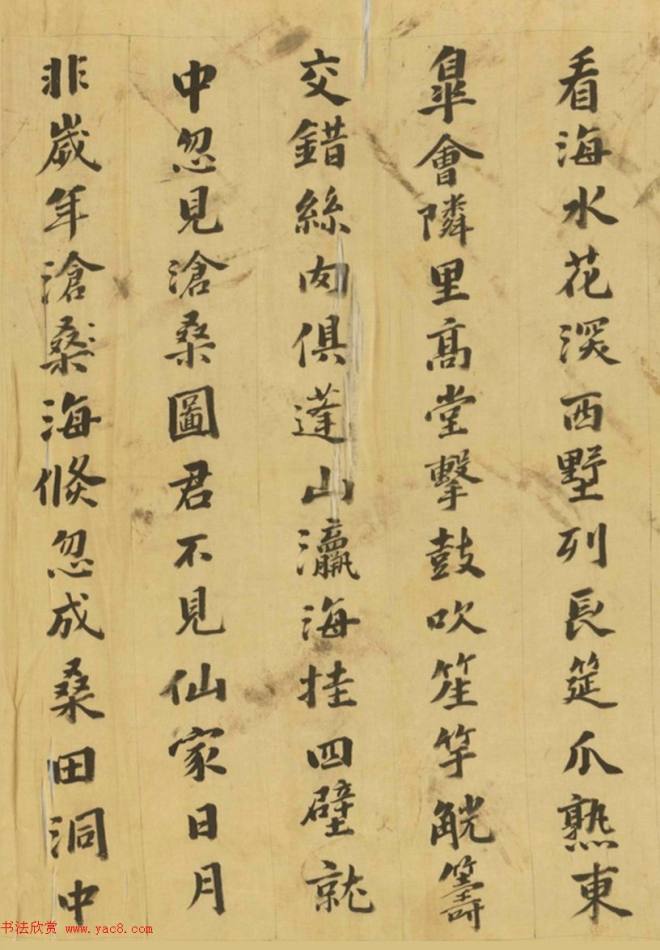 看海水花深西墅列長筵爪熟東
皐會隣里高堂擊鼓吹笙竽觥籌
交錯絲肉俱蓬山瀛海挂四壁就
中忽見滄桑圖君不見仙家日月
非歲年滄桑海倐忽成桑田洞中
书法欣赏 www.yac8.com